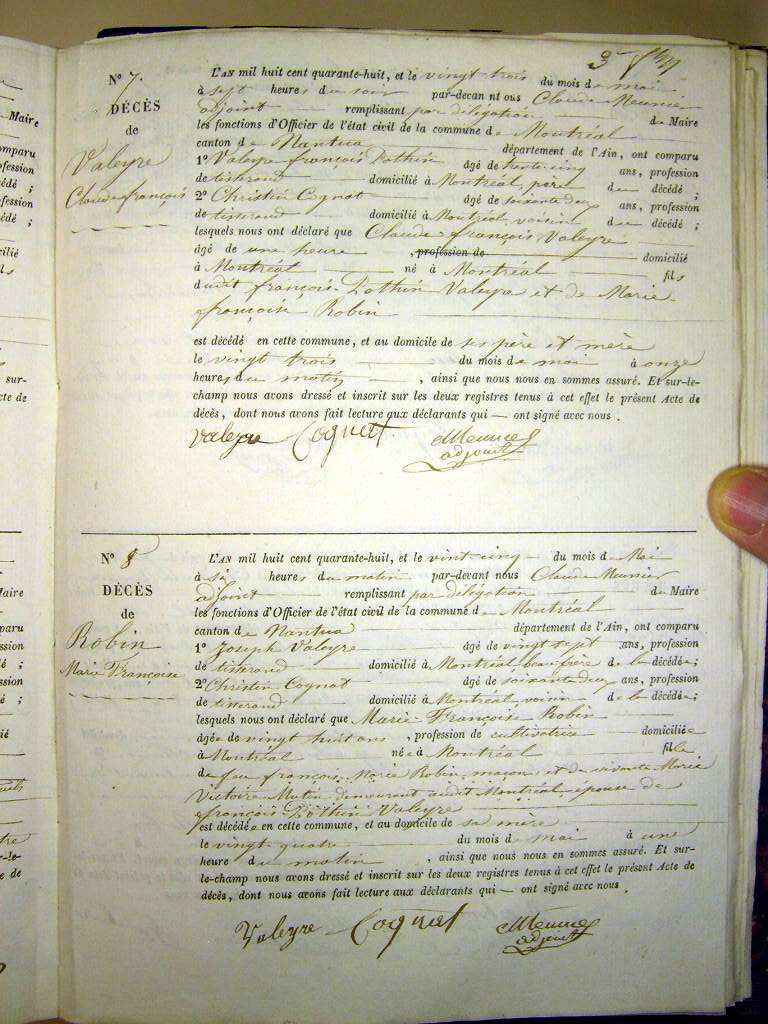 N° 7.
DÉCÈS
de
Valeyre
Claude françois
L'AN mil huit cent quarante-huit, et le vingt trois du mois de mai
à sept heures du soir par-devant nous Claude Meunier
adjoint remplissant par délégation de Maire
les fonctions d'Officier de l'état civil de la commune de Montréal
canton de Nantua département de l'Ain, ont comparu
1° Valeyre françois Dothin âgé de trente cinq ans, profession
de tisserand domicilié à Montréal, père du décédé ;
2° Christin Cognat âgé de soixante deux ans, profession
de tisserand domicilié à Montréal voisin du décédé ;
lesquels nous ont déclaré que Claude-françois Valeyre
âgé de une heure , profession de domicilié
à Montréal né à Montréal fils
dudit françois-Dothin Valeyre et de Marie
françoise Robin
est décédé en cette commune, et au domicile de ses père et mère
le vingt trois du mois de mai à onze
heures du matin , ainsi que nous nous en sommes assuré. Et sur-le-
champ nous avons dressé et inscrit sur les deux registres tenus à cet effet le présent Acte de
décès, dont nous avons fait lecture aux déclarants qui — ont signé avec nous .
Valeyre Cognat Meunier
adjoint
N° 8
DÉCÈS
de
Robin
Marie Françoise
L'AN mil huit cent quarante-huit, et le vint-cinq du mois de Mai
à six heures du matin par-devant nous Claude Meunier
adjoint remplissant par délégation de Maire
les fonctions d'Officier de l'état civil de la commune de Montréal
canton de Nantua département de l'Ain, ont comparu
1° Joseph Valeyre âgé de vingt sept ans, profession
de tisserand domicilié à Montréal beau frère de la décédée ;
2° Christin Cognat âgé de soixante deux ans, profession
de tisserand domicilié à Montréal voisin de la décédée ;
lesquels nous ont déclaré que Marie-Françoise Robin
âgée de vingt huit ans , profession de cultivatrice domiciliée
à Montréal née à Montréal fille
de feu françois-Marie Robin, maçon, et de vivante Marie
Victoire Mutin demeurant audit Montréal, épouse de
françois Dothin Valeyre
est décédée en cette commune, et au domicile de sa mère
le vingt-quatre du mois de mai à une
heure du matin , ainsi que nous nous en sommes assuré. Et sur-
le-champ nous avons dressé et inscrit sur les deux registres tenus à cet effet le présent Acte de
décès, dont nous avons fait lecture aux déclarants qui — ont signé avec nous .
Valeyre Cognat Meunier
adjoint